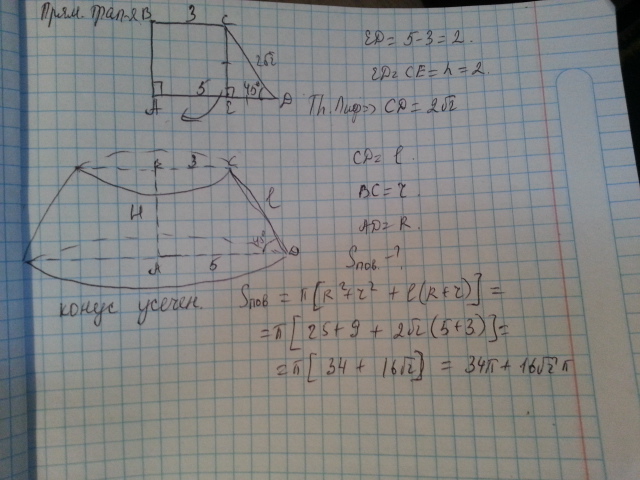 Прям. трап-я
B 3 C
2√2
5 45°
A E D
ED = 5-3 = 2.
ED = CE = h = 2.
Th. Пиф => CD = 2√2
3 C
H l
45°
A 5 D
CD = l
BC = r
AD = R.
Sпов - ?
конус усечен.
Sпов = π[R²+r² + l(R+r)] =
= π[25+9 + 2√2(5+3)] =
= π[34 + 16√2] = 34π + 16√2 π